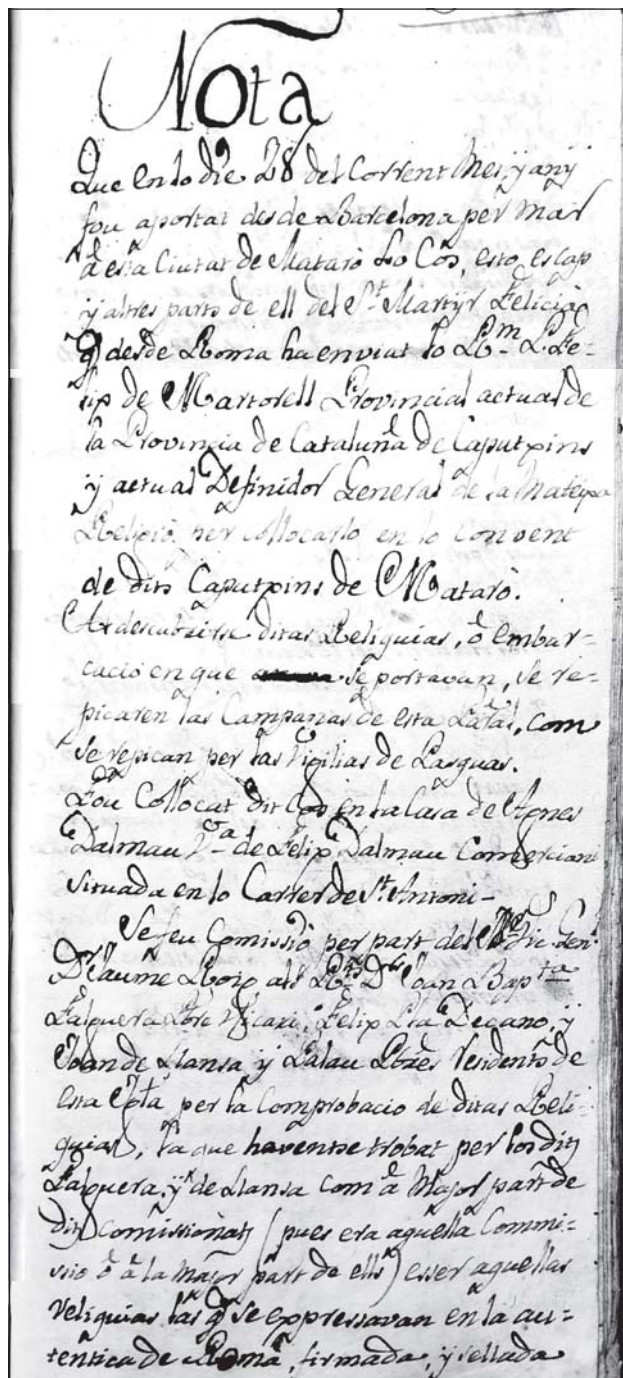 Nota
Que en lo die 28 del Corrent Mes, y any
fou aportat desde Barcelona per mar
â esta Ciutat de Mataró Lo Cos, esto, es cap
y altres parts de ell del St. Martyr Felicià
q̃ desde Roma ha enviat lo Rm. P. Fe-
lip de Martorell Provincial actual de
la Provincia de Cataluña de Caputxins
y actual Definidor General de la Mateixa
Religió, per collocarlo en lo Convent
de dits Caputxins de Mataró.
Al descubrirse ditas Reliquias, ô embar-
cació en que se portavan, se re-
picaren las Campanas de esta Parãl, com
se repican per las Vigilias de Pasquas.
Fou Collocat dit Cos en la Casa de Agnes
Dalmau Va. de Felip Dalmau Comerciant
situada en lo Carrer de St. Antoni-
Se feu Comissió per part del Vic. Genl.
Dr. Jaume Roig als Rts. Drs. Joan Bapta
Falguera Pbre Vicari, Felip Pla Degano, y
Joan de Llansa y Palau Pbres Residents de
esta Igla, per la Comprobacio de ditas Reli-
quias, la que havense trobat per los dits
Falguera, y de Llansa com â Major part de
dits comissionats (pues era aquella Commi-
ssio ô â la Major part de ells) esser aquellas
reliquias las q̃ se expressavan en la au-
tentica de Roma, firmada, y sellada